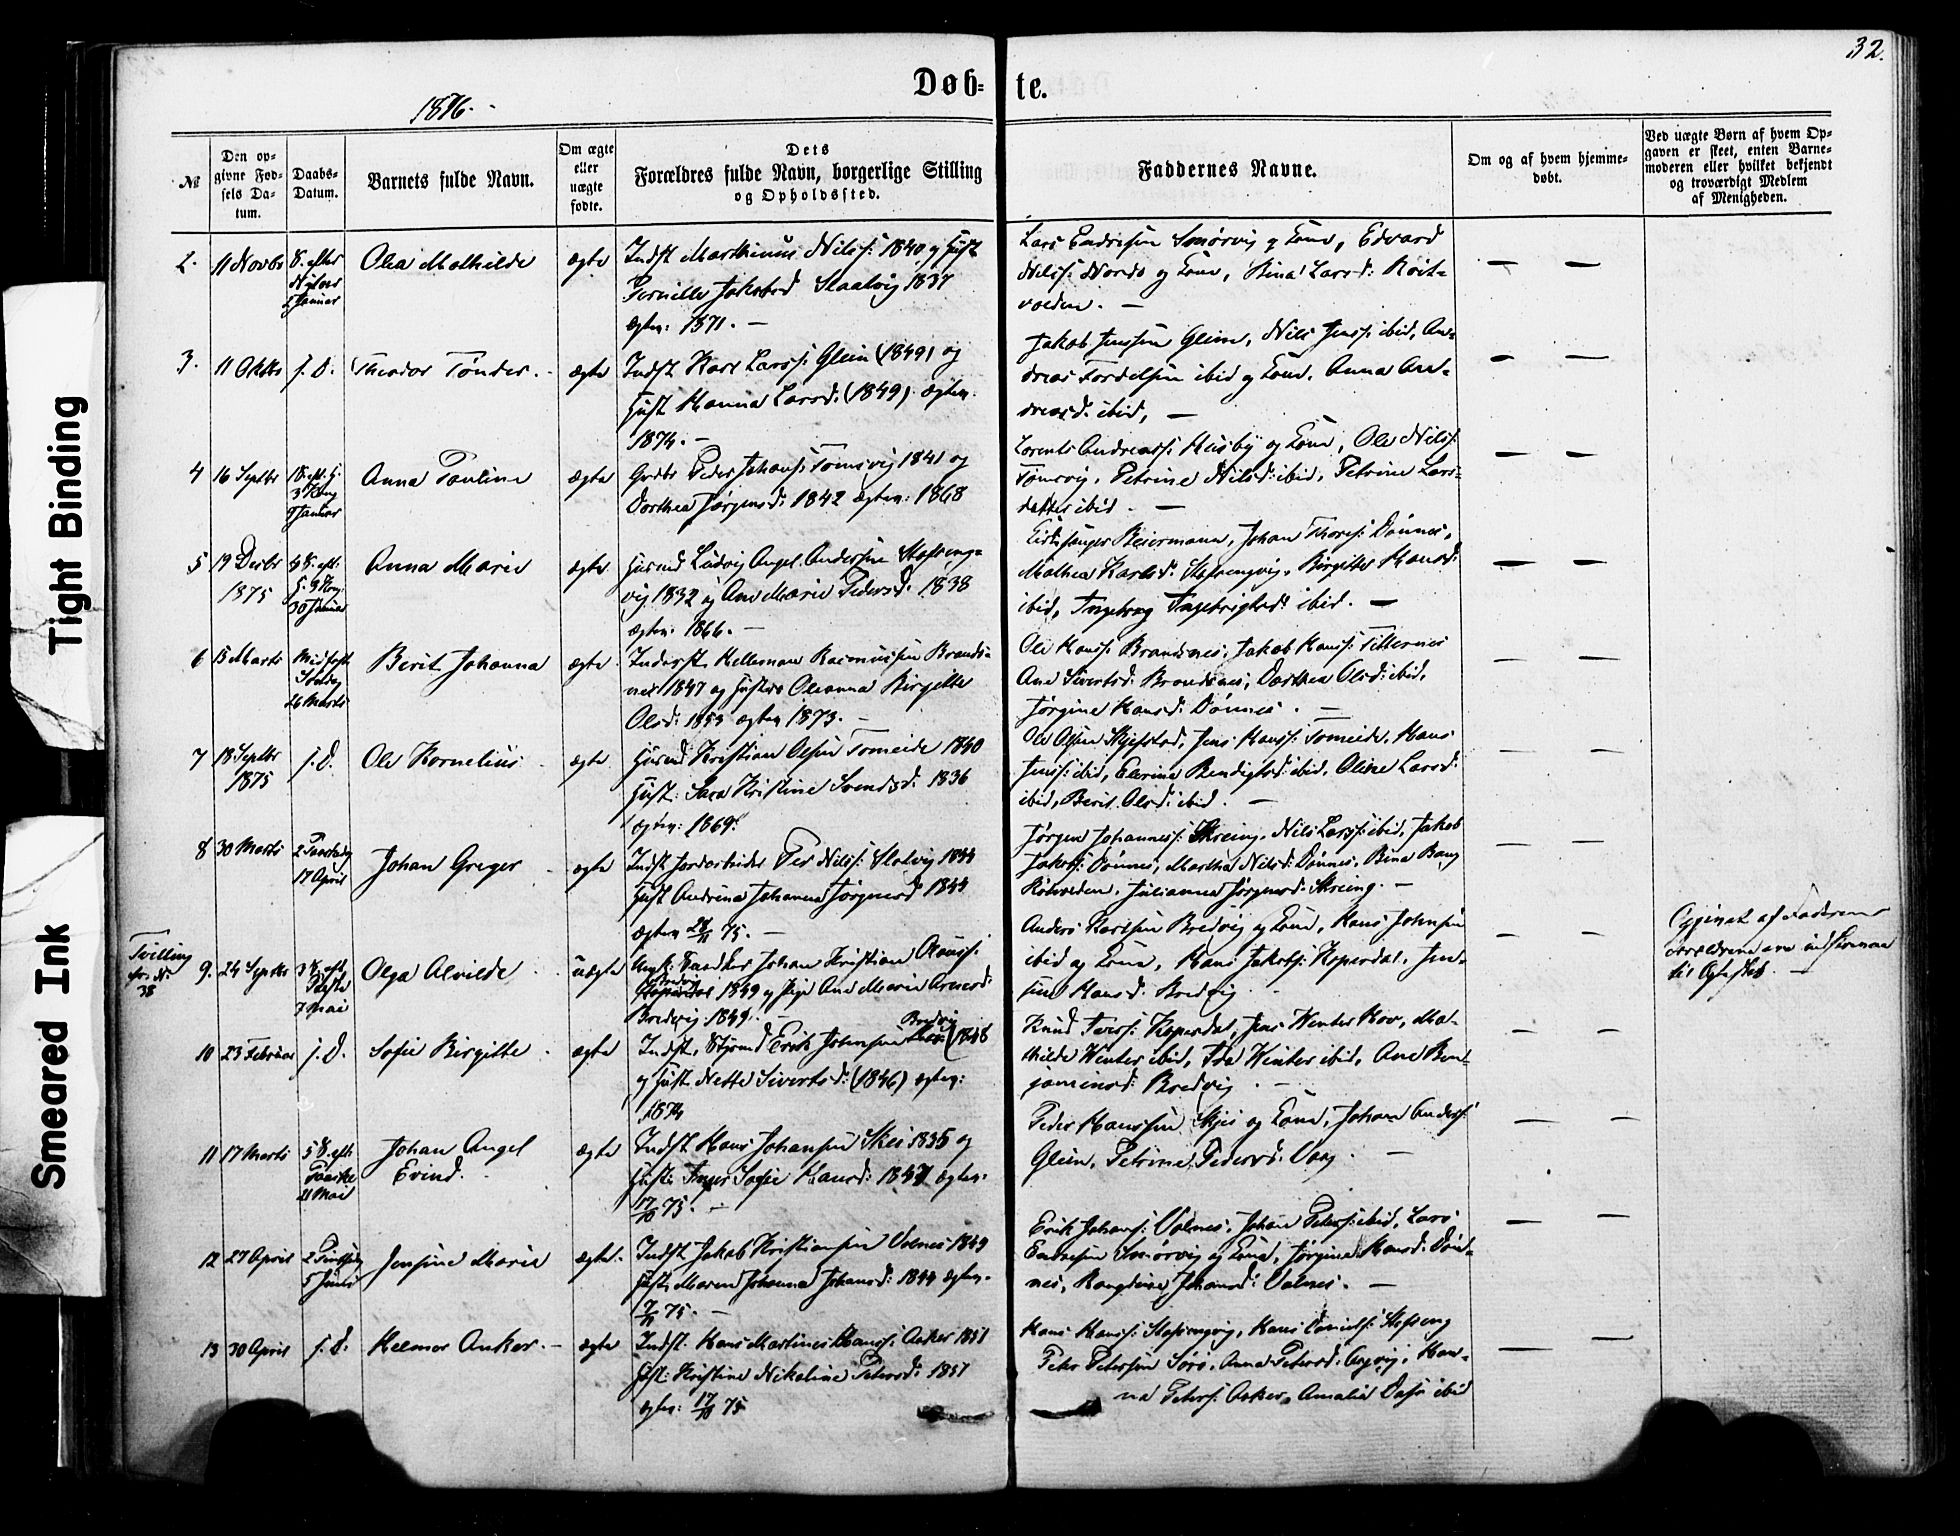 32.
Døb= te.
1876.
№
Den op=
givne Fød=
sels Da=
tum.
Daabs=
Datum.
Barnets fulde Navn.
Om ægte
eller
uægte
fødte.
Dets
Forældres fulde Navn, borgerlige Stilling
og Opholdssted.
Faddernes Navne.
Om og af hvem hjemme=
døbt.
Ved uægte Børn af hvem Op=
gaven er skeet, enten Barne=
moderen eller hvilket bekjendt
og troværdigt Medlem
af Menigheden.
2. 11 Novbr S. efter Nytaar 2 Januar Olea Mathilde ægte
Indst Marthinus Nilss: 1840 og Hust
Pernille Jakobsd Slaatvig 1837
ægtev: 1871. —
Lars Endresen Smørvig og Kone, Edvard
Nilss: Nordø og Kone, Bina Larsd: Röit=
volden. —
3. 11 Oktbr s. D. Theodor Tønder. ægte
Indst Karl Larss: Glein (1849) og
Hust Hanna Larsd. (1849) ægtev.
1874. —
Jakob Jenssen Glein, Nils Jenss: ibid, An=
dreas Tordelsen ibid og Kone, Anna An=
dreasd: ibid, —
4 16 Septbr Januar Anna Paulina ægte
Gaardbr Peder Johans: Tomsvig 1841 og
Dorthea Jørgensd: 1842 ægtev: 1868
Lorents Andreass: Husby og Kone, Ole Nilss:
Tomsvig, Petrine Nilsd: ibid, Petrine Lars=
datter ibid. —
5 19 Decbr 1875 4 S. eft. H. 3 Kong 30 Januar Anna Marie ægte
Husmd Ludvig Angel Andersen Stafseng=
vig 1832 og Ane Marie Pedersd: 1838
ægtev. 1866. —
Kirkesanger Beiermann, Johan Thoress: Dønnes,
Mathea Karlsd: Stafsengvig, Birgitte Hansd:
ibid, Ingeborg Ingebrigtsd: ibid. —
6 15 Marts Midfaste Søndag 26 Marts Berit Johanna ægte
Inderst Kelleman Rasmussen Brands=
nes 1847 og Hustru Oleanna Birgitte
Olsd: 1853 ægtev 1873. —
Ole Hanss: Brandsnes, Jakob Hanss: Titternes
Ane Sivertsd: Brandsnes, Dorthea Olsd: ibid,
Jørgine Hansd: Dønnes. —
7 18 Septbr 1875 s. D. Ole Kornelius ægte
Husmd Kristian Olsen Tomeide 1840
Hust: Sara Kristine Svendsd: 1836
ægtev: 1869.
Ole Olsen Skjefstad, Jens Hanss: Tomeide, Hans
Jenss: ibid, Elerina Bendigtsd: ibid, Oline Larsd:
ibid, Berit Olsd: ibid. —
8 30 Marts 2 Paaskedag 17 April Johan Greger ægte
Indst Jordarbeider Per Nilss: Slotvig 1844
Hust Andrina Johanna Jørgensd 1844
ægtev 75. —
Jørgen Johanness: Skreing, Nils Larss: ibid, Jakob
Jakobs: Dønnes, Martha Nilsd: Dønnes, Bina Bang
Röitvolden, Julianna Jørgensd: Skreing. —
Tvilling
9. 24 Septbr 7 Mai Olga Alvilde uægte
Ungk: Snedker Johan Kristian Olauss:
Bredvig
1849 og Pige Ane Marie Arnesd:
Bredvig 1849. —
Anders Karlsen Bredvig og Kone, Hans Johnsen
ibid og Kone, Hans Jakobs: Koperdal, Jen=
sine Hansd: Bredvig
Opgivet af Faderen
Forældrene ere indskrevne
til Ægteskab. —
10 23 Februar s. D. Sofie Birgitte ægte
Indst, Styrmd Erik Johnsen Bredvig (1848
og Hust Nette Sivertsd: (1846) ægtev:
1874
Knud Iverss: Koperdal, Jens Winter Kov, Ma=
thilde Winter ibid, Ida Winter ibid, Ane Ben=
jaminsd: Bredvig. —
11 17 Marts 5 S. eft. Paaske 21 Mai Johan Angel
Evind ægte
Indst Hans Johansen Skei 1835 og
Hust: Inger Sofie Hansd: 1847 ægtev.
17/10 75. —
Peder Hanssen Skjei og Kone, Johan Anderss:
Glein, Petrine Pedersd: Vaag. —
12 27 April 2 Pintsedag 5 Juni Jensine Marie ægte
Indst Jakob Kristiansen Valnes 1849
Hust: Maren Johanna Johansd: 1844 ægtev.
75. —
Erik Johans: Valnes, Johan Peters: ibid, Lars
Endresen Smørvig og Kone, Jørgine Hansd: Døn=
nes, Johansd: Valnes. —
13 30 April s. D. Helmer Anker. — ægte
Indst. Hans Martines Hanss: Anker 1851
Hust: Kristine Nikoline Petersd: 1851
ægtev: 17/10 75
Hans Hanss: Stafsengvig, Hans Daniels: Stafseng
Peter Petersen Sørø, Anna Petersd:
na Peters: Anker, Amalia ibid
Tight Binding
Smeared Ink